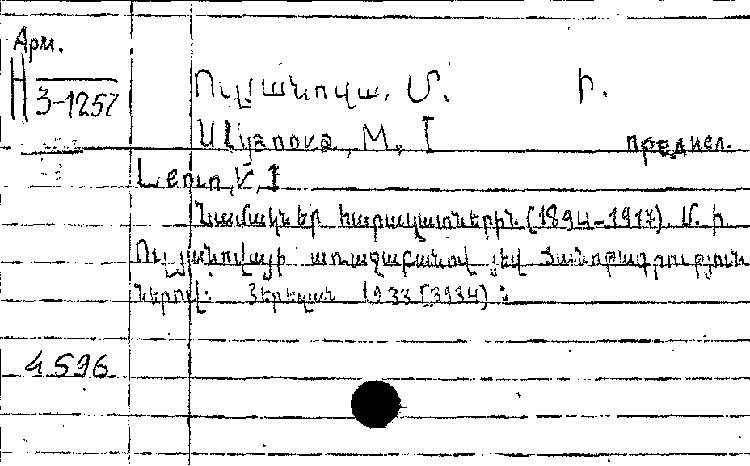 Арм.
H 3-1257
Ուլյանովա, Մ. Ի.
Ulyanova, M. I предисл.
Lenin, V, I
Նամակներ հարազատներին (1894-1917). Մ. Ի
Ուլյանովայի առաջաբանով յեվ ծանոթագրություն
ներով: Յերեվան 1933 [1934) :
4596